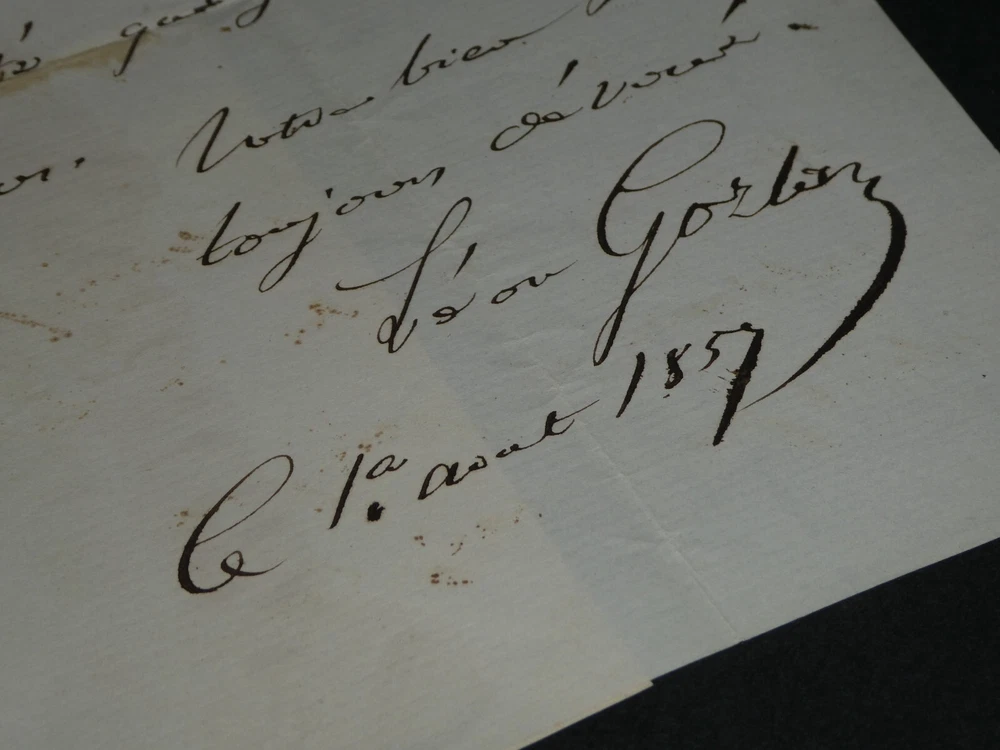 Votre bien
toujours dévoué
Léon Gozlan
le 1er aout 1857